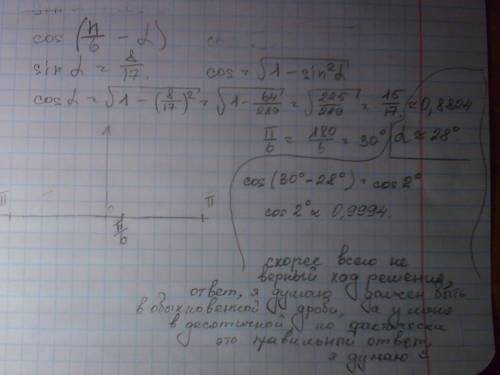 cos (π/6 - α)
sin α = 8/17.
cos = √(1 - sin²α)
cos α = √(1 - (8/17)²) = √(1 - 64/289) = √(225/289) = 15/17 ≈ 0,8824
π/6 = 180/6 = 30°
α ≈ 28°
cos(30° - 28°) = cos 2°
cos 2° ≈ 0,9994.
1
0
π
π/6
π
скорее всего не
верный ход решения,
ответ, я думаю должен быть
в обыкновенной дроби, а у меня
в десятичной но фактически
это правильный ответ,
я думаю